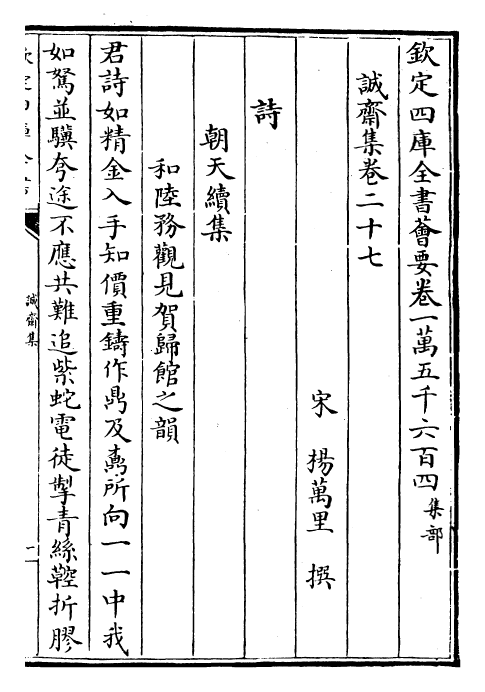 欽定四庫全書薈要卷一萬五千六百四集部
誠齋集卷二十七
宋 楊萬里 撰
詩
朝天續集
和陸務觀見賀歸館之韻
君詩如精金入手知價重鑄作鼎及鼒所向一一中我
如駑並驥夸途不應共難追紫蛇電徒掣青絲鞚折膠
誠齋集
一